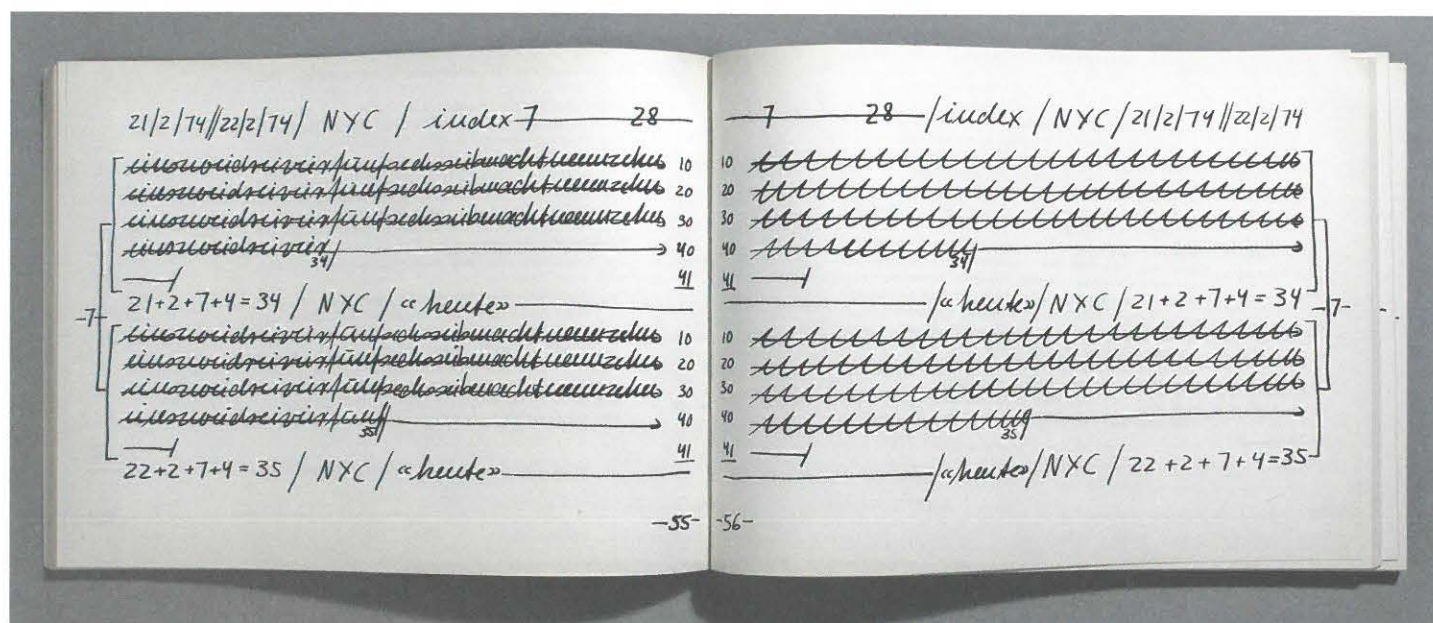 21/2/74//22/2/74/ NYC / index 7 28
einszweidreivierfünfsechssiebenachtneunzehn 10
einszweidreivierfünfsechssiebenachtneunzehn 20
einszweidreivierfünfsechssiebenachtneunzehn 30
einszweidreivier/ 34 40
41
21+2+7+4=34 / NYC / «heute»
-7-
einszweidreivierfünfsechssiebenachtneunzehn 10
einszweidreivierfünfsechssiebenachtneunzehn 20
einszweidreivierfünfsechssiebenachtneunzehn 30
einszweidreivierfünf/ 35 40
41
22+2+7+4=35 / NYC / «heute»
-55-
7 28 /index / NYC / 21/2/74//22/2/74
10
20
30
40 34/
41
/«heute»/ NYC / 21+2+7+4=34
-7-
10
20
30
40 35/
41
/«heute»/ NYC / 22+2+7+4=35
-56-